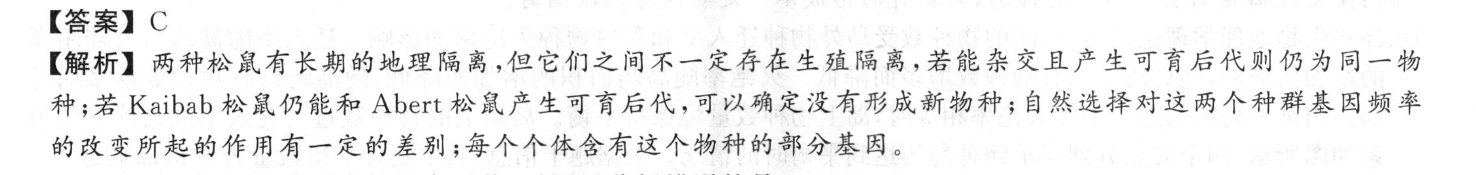 【答案】C
【解析】两种松鼠有长期的地理隔离,但它们之间不一定存在生殖隔离,若能杂交且产生可育后代则仍为同一物
种;若 Kaibab 松鼠仍能和 Abert 松鼠产生可育后代,可以确定没有形成新物种;自然选择对这两个种群基因频率
的改变所起的作用有一定的差别;每个个体含有这个物种的部分基因。